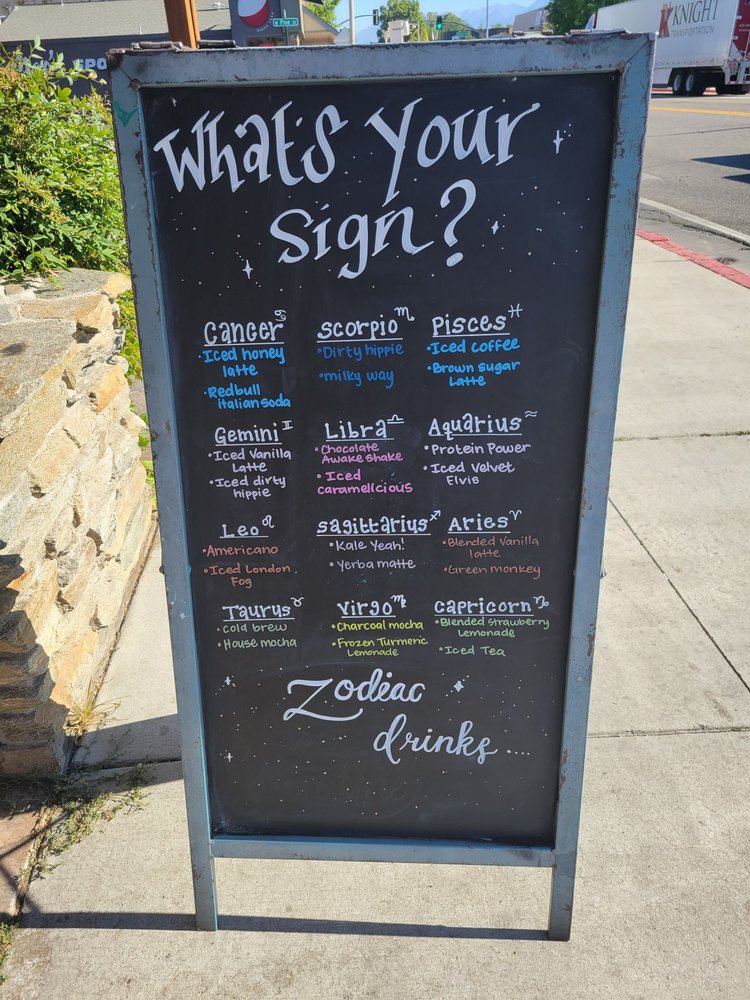 W Pine St
KNIGHT
TRANSPORTATION
What's Your
Sign?
Cancer ♋
• Iced honey
latte
• Redbull
italian soda
Scorpio ♏
• Dirty hippie
• milky way
Pisces ♓
• Iced coffee
• Brown sugar
Latte
Gemini ♊
• Iced Vanilla
Latte
• Iced dirty
hippie
Libra ♎
• Chocolate
Awake shake
• Iced
caramelicious
Aquarius ♒
• Protein Power
• Iced Velvet
Elvis
Leo ♌
• Americano
• Iced London
Fog
Sagittarius ♐
• Kale Yeah!
• Yerba matte
Aries ♈
• Blended Vanilla
latte
• Green monkey
Taurus ♉
• cold brew
• House mocha
Virgo ♍
• Charcoal mocha
• Frozen Turmeric
Lemonade
Capricorn ♑
• Blended strawberry
Lemonade
• Iced Tea
Zodiac
drinks....